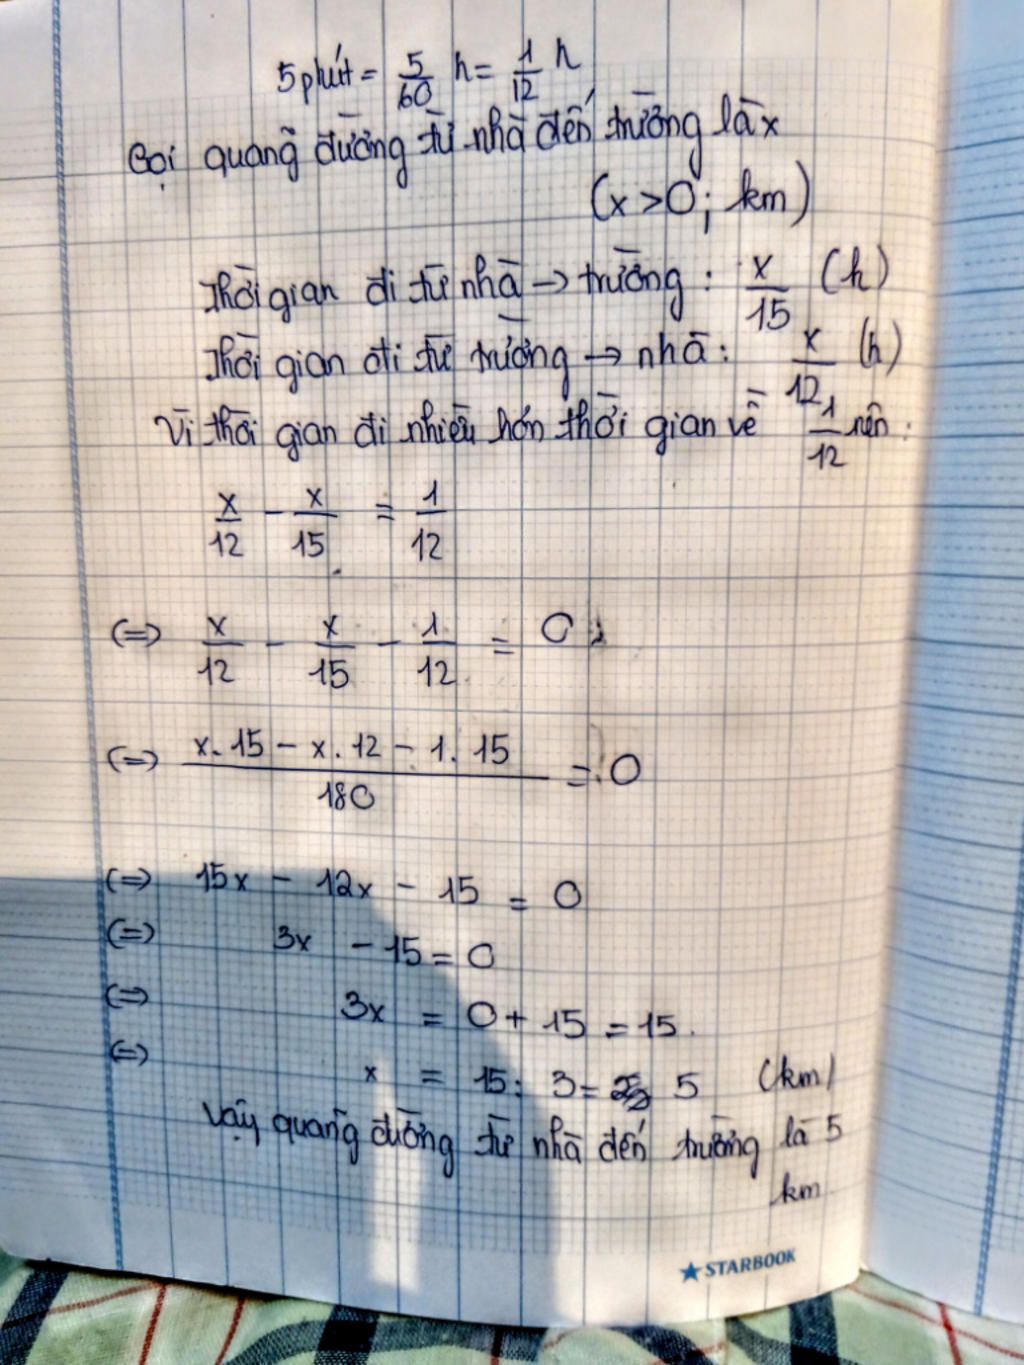 5 phút = 5/60 h = 1/12 h
Gọi quãng đường từ nhà đến trường là x
(x > 0; km)
Thời gian đi từ nhà → trường : x/15 (h)
Thời gian đi từ trường → nhà : x/12 (h)
Vì thời gian đi nhiều hơn thời gian về 1/12 nên :
x/12 - x/15 = 1/12
(=) x/12 - x/15 - 1/12 = 0
(=) (x.15 - x.12 - 1.15)/180 = 0
(=) 15x - 12x - 15 = 0
(=) 3x - 15 = 0
(=) 3x = 0 + 15 = 15.
(=) x = 15 : 3 = 5 (km)
Vậy quãng đường từ nhà đến trường là 5
km
★ STARBOOK